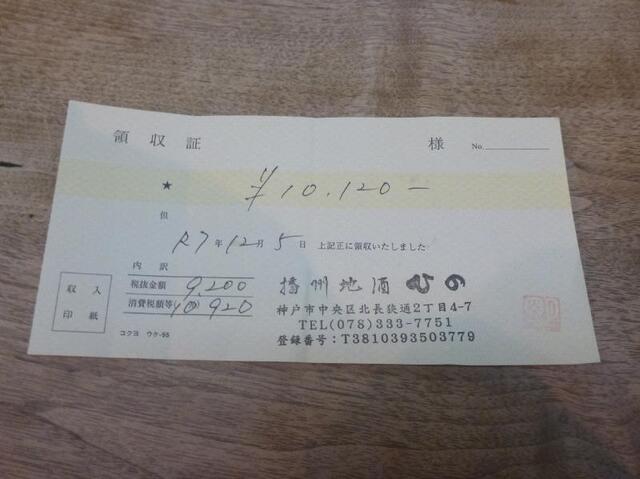 領収証 様 No.
★ ¥10,120-
但
R7年12月5日 上記正に領収いたしました
内訳
税抜金額 9,200
消費税額等(10%) 920
収入
印紙
コクヨ ウケ-55
播州地酒 ひの
神戸市中央区北長狭通2丁目4-7
TEL(078)333-7751
登録番号:T3810393503779